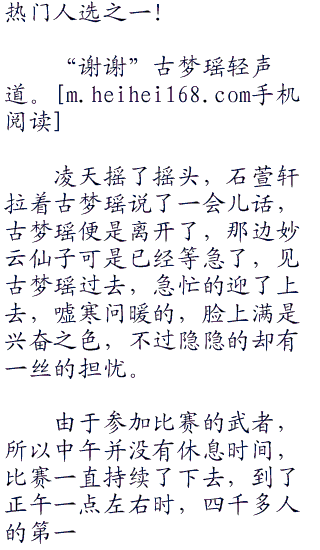 热门人选之一!
“谢谢”古梦瑶轻声
道。[m.heihei168.com手机
阅读]
凌天摇了摇头，石萱轩
拉着古梦瑶说了一会儿话，
古梦瑶便是离开了，那边妙
云仙子可是已经等急了，见
古梦瑶过去，急忙的迎了上
去，嘘寒问暖的，脸上满是
兴奋之色，不过隐隐的却有
一丝的担忧。
由于参加比赛的武者，
所以中午并没有休息时间，
比赛一直持续了下去，到了
正午一点左右时，四千多人
的第一